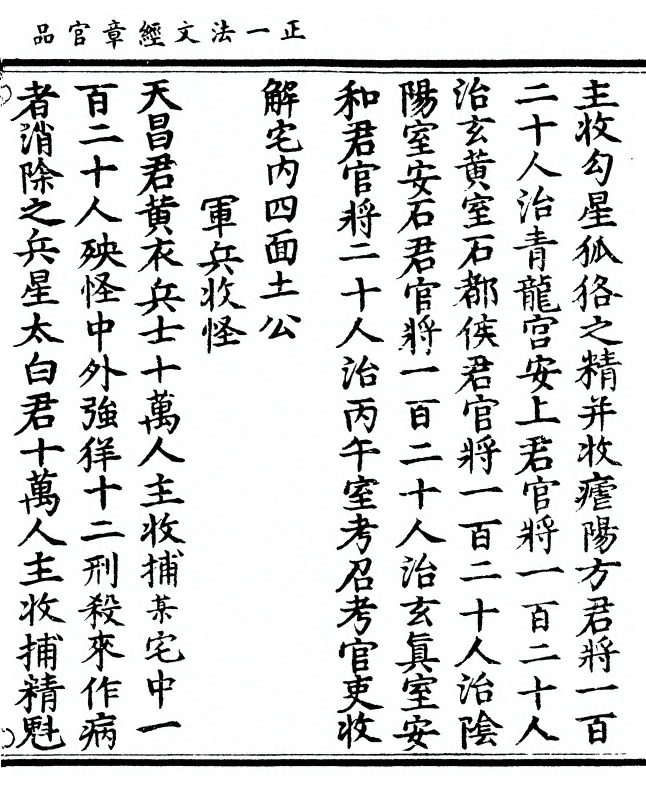 正一法文經章官品
主收勾星狐狢之精并收瘧陽方君將一百
二十人治青龍宫安上君官將一百二十人
治玄黄室石都侯君官將一百二十人治陰
陽室安石君官將一百二十人治玄真室安
和君官將二十人治丙午室考召考官吏收
解宅内四面土公
軍兵收怪
天昌君黄衣兵士十萬人主收捕某宅中一
百二十人殃怪中外強㺊十二刑殺來作病
者消除之兵星太白君十萬人主收捕精魁